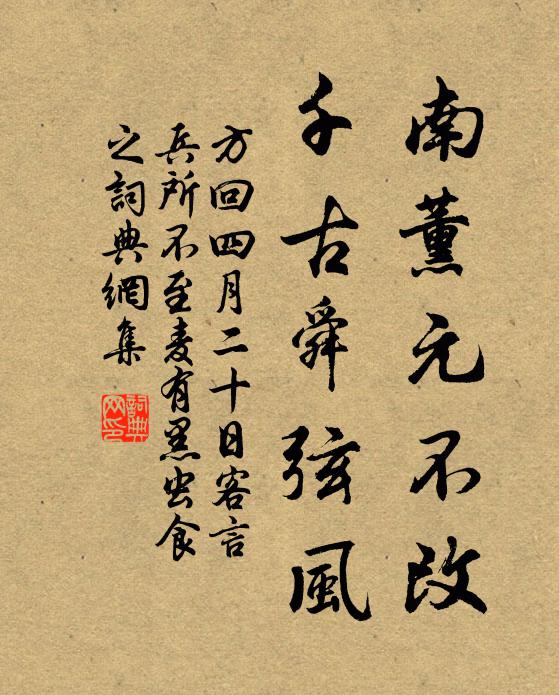 南薰元不改
千古舜弦風
方回四月二十日客言
兵所不至麦有黑虫食
之詞典網集
詞典网印